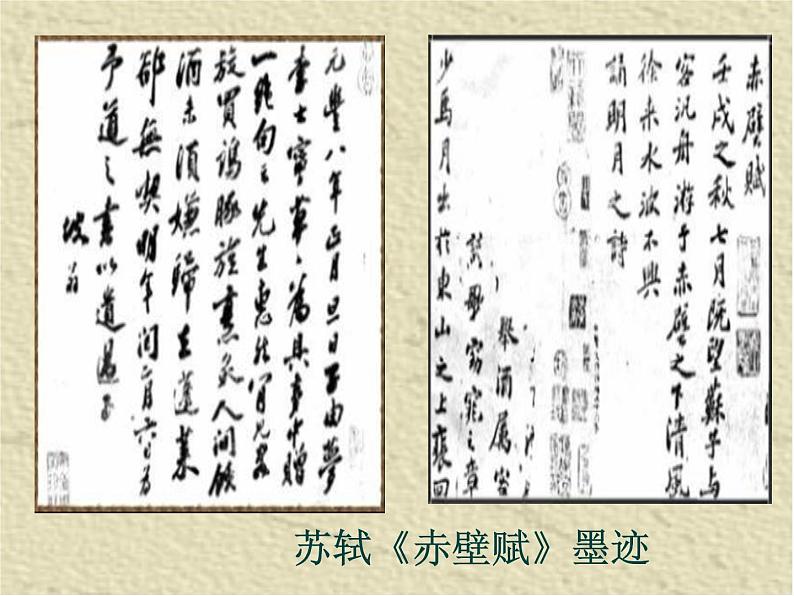 元豐八年正月旦日子由夢
李士寧草草為具夢中贈
一絕句云先生惠然肯見客
旋買鷄豚旋煮炙人間飲
酒未須嫌歸去蓬萊
卻無喫明年閏二月六日為
予道之書以遺過子
坡翁
赤壁賦
壬戌之秋七月既望蘇子与
客汎舟游于赤壁之下清風
徐来水波不興
誦明月之詩
舉酒屬客
窈窕之章
少焉月出於東山之上裵回
苏轼《赤壁赋》墨迹